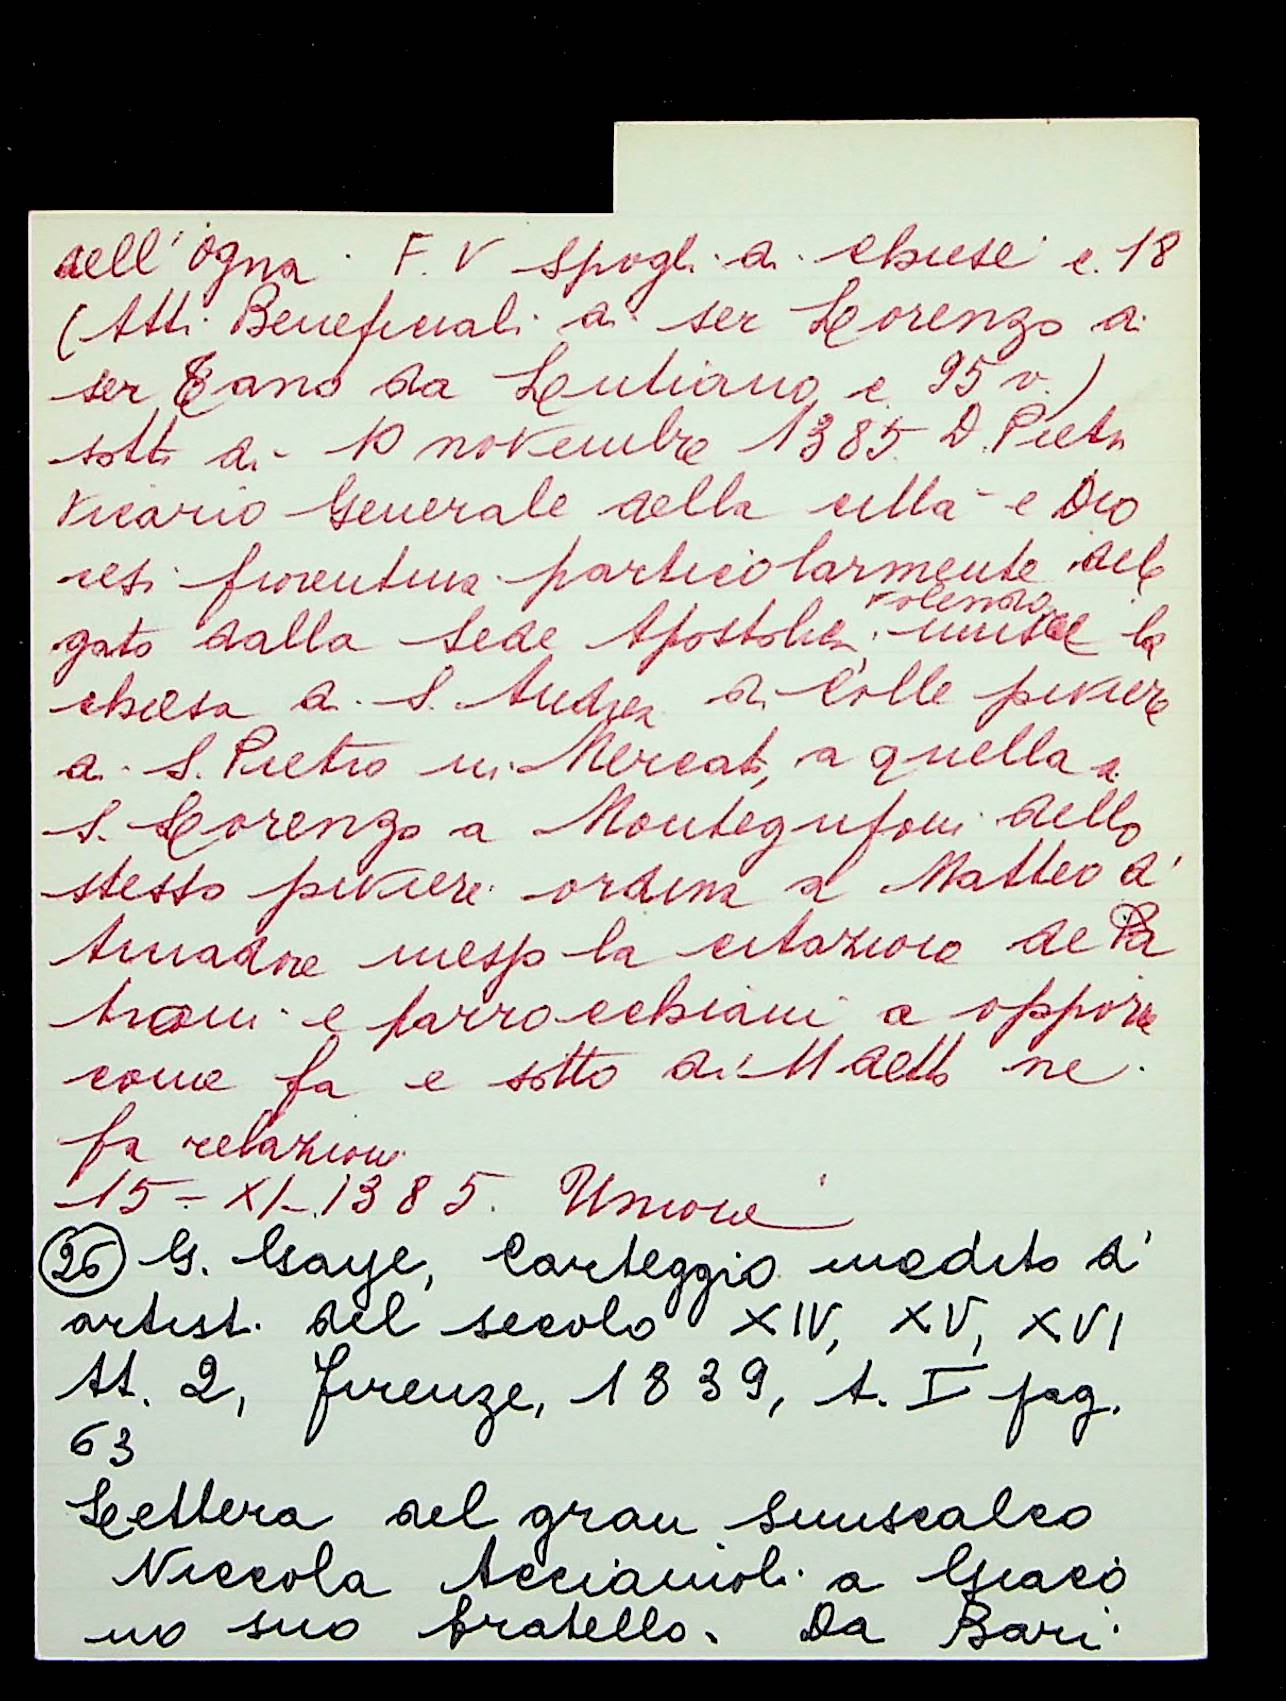 dell'Ogna. F. V Spogli di chiese c. 18
(Atti Beneficiali di ser Lorenzo di
ser Tano da Lutiano c. 95 v.)
sotto di 10 novembre 1385 D. Pietro
Vicario Generale della città e Dio
cesi fiorentina particolarmente dele
gato dalla Sede Apostolica, volendo unire la
chiesa di S. Andrea di Colle piviere
di S. Pietro in Mercato, a quella di
S. Lorenzo a Montegufoni dello
stesso piviere ordina a Matteo d'
Amadore messo la citazione de Pa
troni e parrocchiani a opporre
come fa e sotto di 11 detto ne
fa relazione
15-XI-1385. Unione
(26) G. Gaye, Carteggio inedito d'
artisti del secolo XIV, XV, XVI
tt. 2, Firenze, 1839, t. I pag.
63
Lettera del gran Siniscalco
Niccola Acciaiuoli a Giaco
mo suo fratello. Da Bari